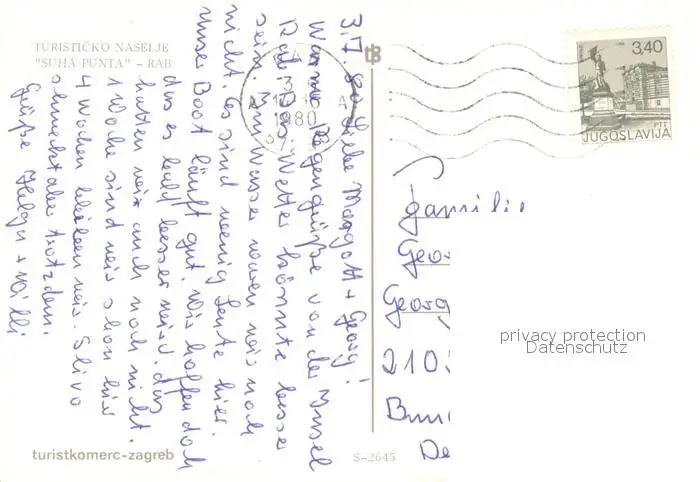 TURISTIČKO NASELJE
"SUHA PUNTA" - RAB
1980
3,40
PTT
JUGOSLAVIJA
3.7. 80 Liebe Margott + Georg!
Warme Regengrüße von der Insel
Rab. Das Wetter könnte besser
sein. Im Wasser waren wir noch
nicht. Es sind wenig Leute hier.
Unser Boot läuft gut. Wir hoffen doch
das es bald besser wird. Das
hatten wir auch noch nicht.
1 Woche sind wir schon hier
4 Wochen bleiben wir. Slivo
schmeckt aber trotzdem.
Grüße Helga + Willi
Famili
Geor
Georg
210
Bun
De
privacy protection
Datenschutz
turistkomerc-zagreb
S-2645